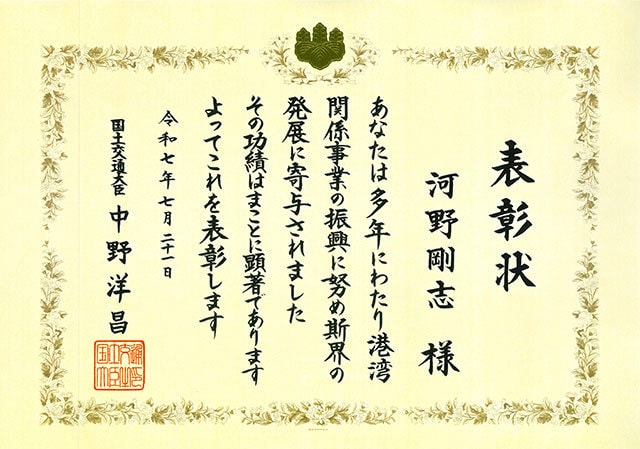 表彰状
河野剛志 様
あなたは多年にわたり港湾
関係事業の振興に努め斯界の
発展に寄与されました
その功績はまことに顕著であります
よってこれを表彰します
令和七年七月二十一日
国土交通大臣 中野洋昌